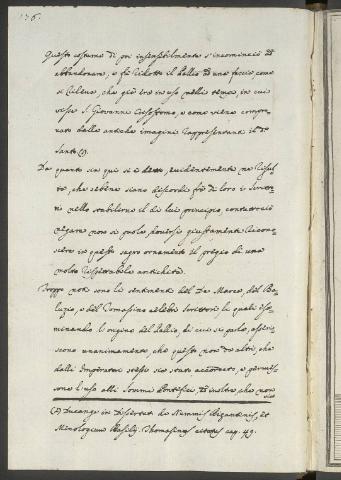 176.
Questo costume di poi insensibilmente s'incominciò ad
abbandonare, e fù ridotto il Pallio ad una foccia, come
si rileva, che già era in uso nelli tempi, in cui
visse S. Giovanni Crisostomo, e come viene compro-
vato dalle antiche imagini rappresentanti il d.º
Santo (1).
Da quanto sin qui si è detto, evidentemente ne risul-
ta, che sebene siano discordi frà di loro i Scritto-
ri nello stabilirne il di lui principio, contuttociò
negare non si puole doversi giustamente ricono-
scere in questo sagro ornamento il pregio di una
molto rispettabile antichità.
Troppo noti sono li sentimenti del De Marca, del Ba-
luzio, e del Tomasino celebri Scrittori, li quali esa-
minando l'origine del Pallio, di cui si parla, asseri-
scono unanimamente, che questo non da altri, che
dalli Imperatori stessi sia stato accordato, e permes-
sone l'uso alli Sommi Pontefici, ed inoltre, che non
(1) Ducange in Dissertat. de Nummis Bizantinis, et
Menologium Basilij. Thomasinus citatus cap. 49.